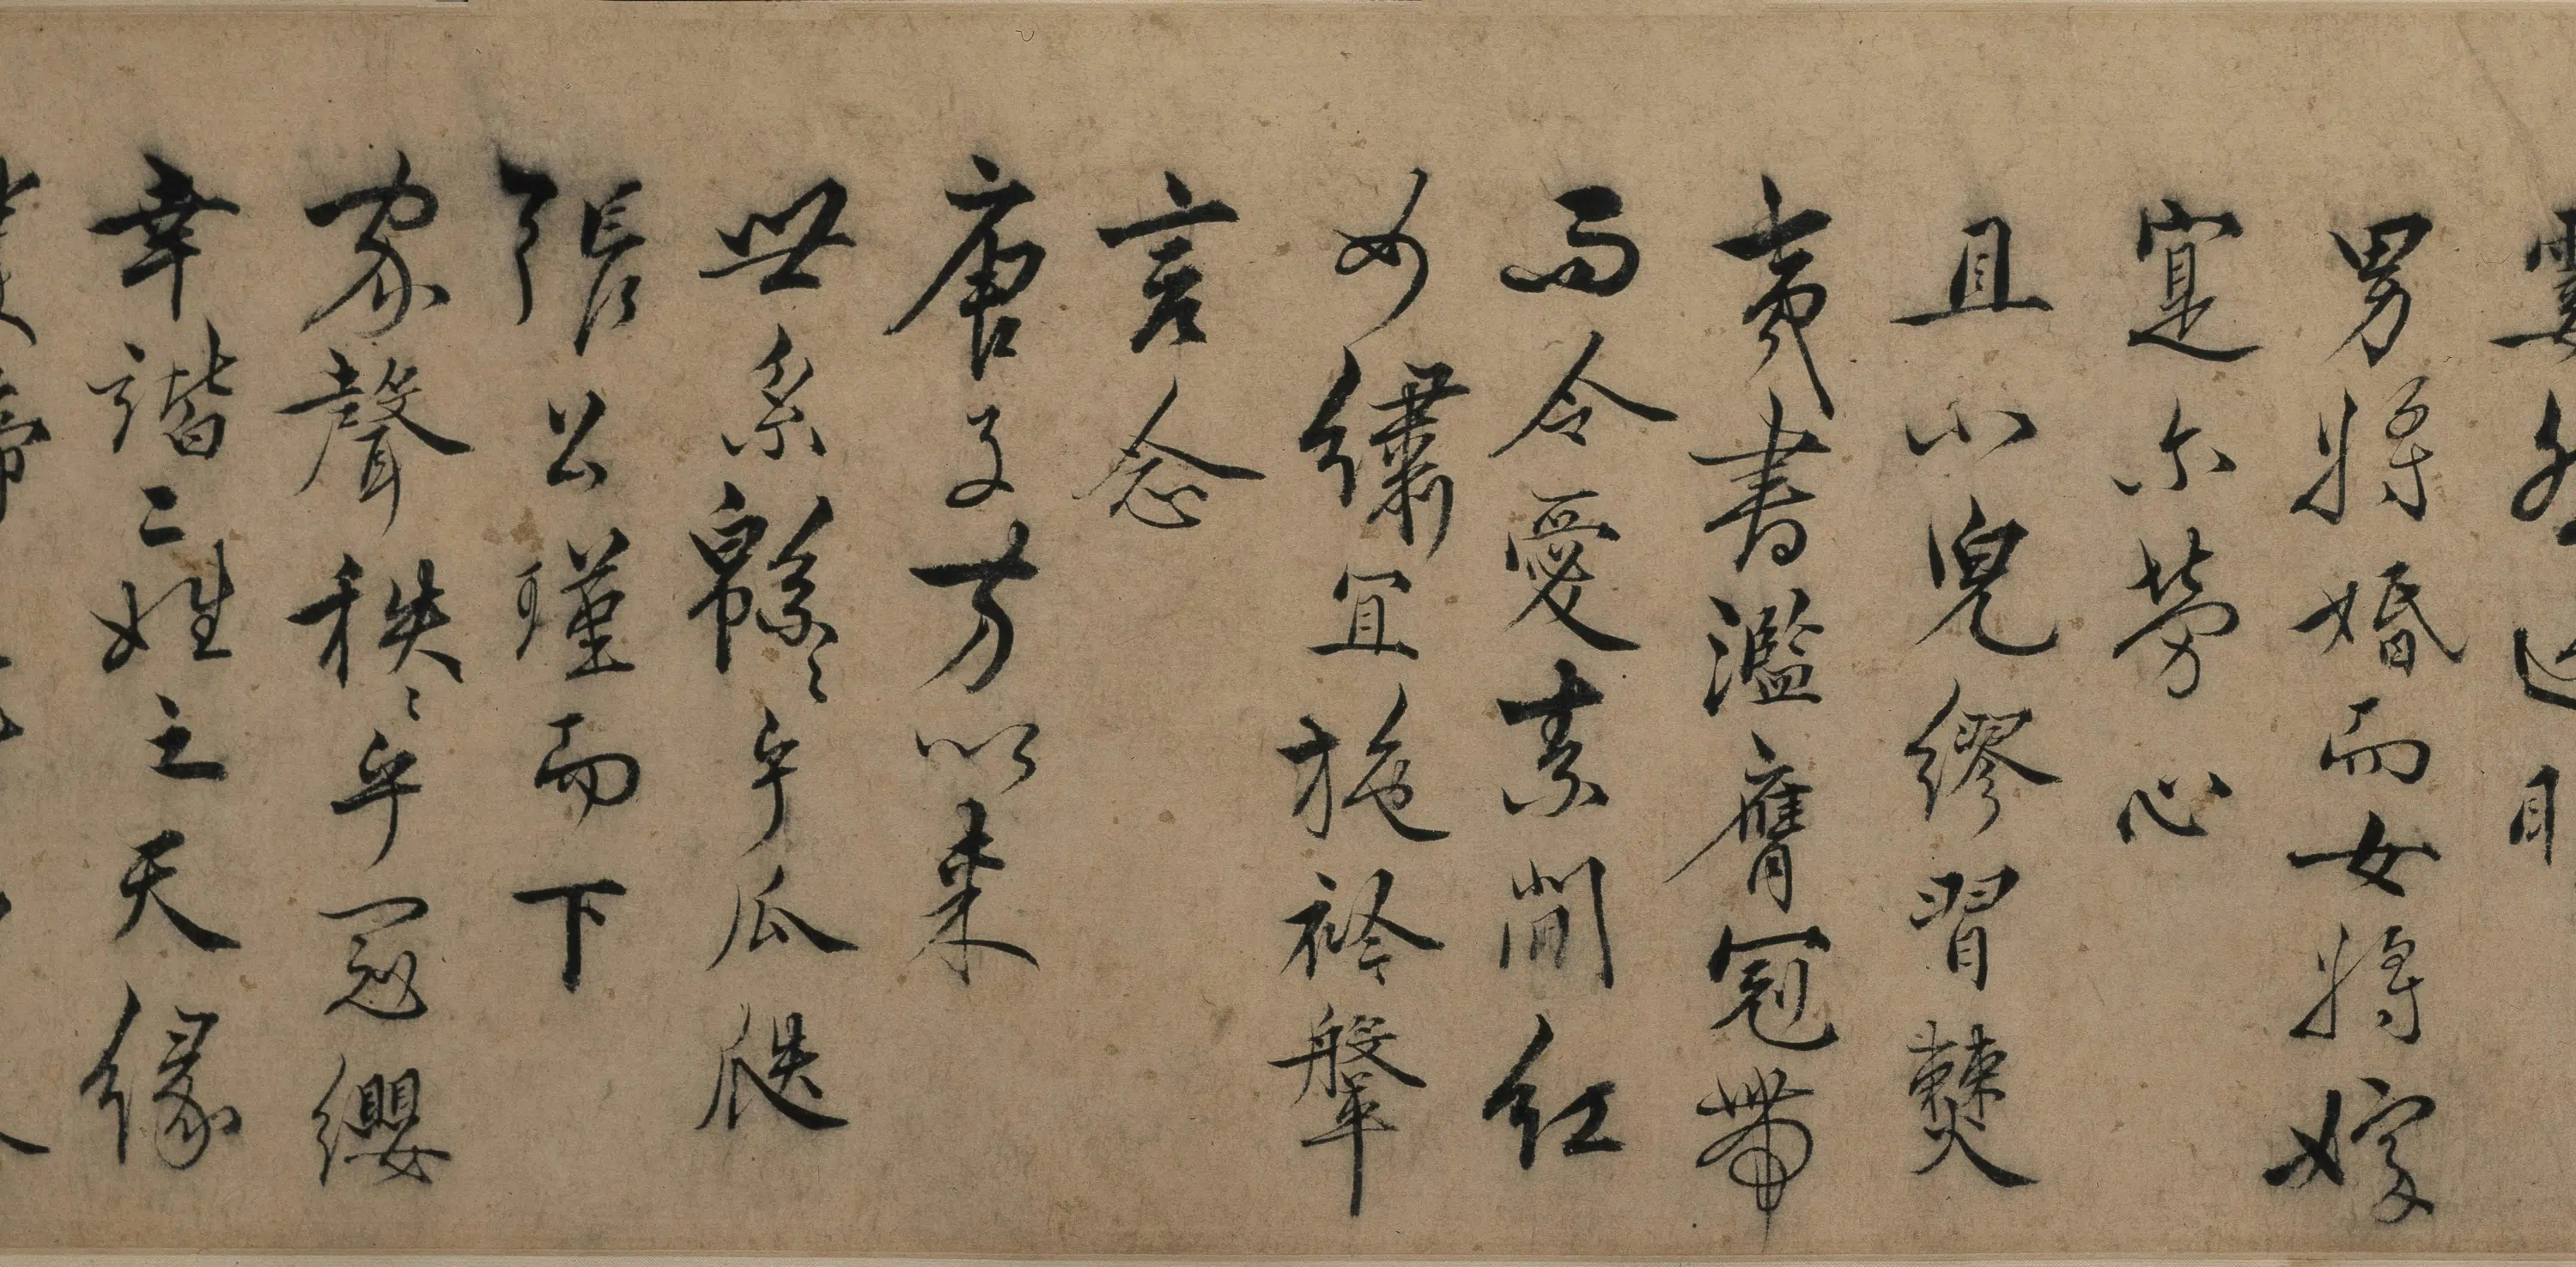 男將婚而女將嫁
寔尒勞心
且小兒繆習僰
夷書濫膺冠帶
而令愛素閒紅
女繡宜施衿鞶
言念
唐子芳以來
世系緜〻乎瓜瓞
張公瑾而下
家聲秩〻乎冠纓
幸諧二姓之天緣